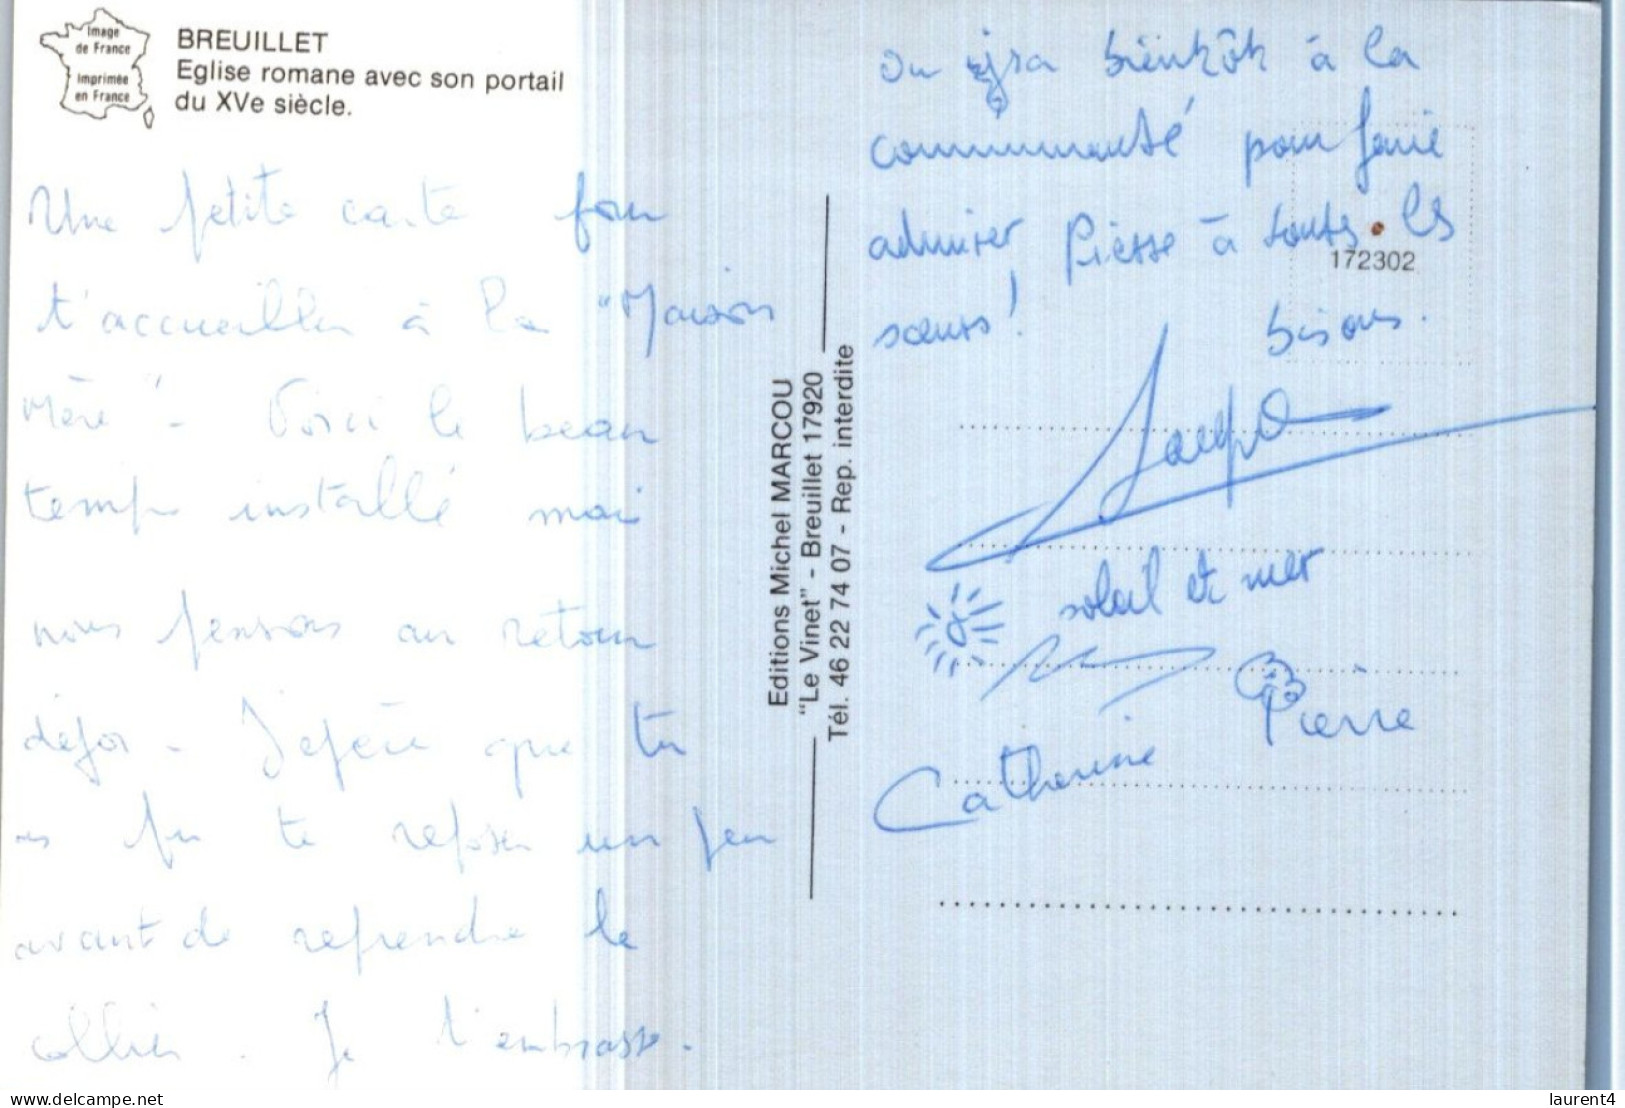 Image
de France
Imprimée
en France
BREUILLET
Eglise romane avec son portail
du XVe siècle.
Une petite carte pour
t'accueillir à la "Maison
Mère" - Voici le beau
temps installé mais
nous pensons au retour
déjà - J'espère que tu
as pu te reposer un peu
avant de reprendre le
collier. Je t'embrasse.
Editions Michel MARCOU
"Le Vinet" - Breuillet 17920
Tél. 46 22 74 07 - Rep. interdite
On ira bientôt à la
communauté pour faire
admirer Pierre à toutes les
172302
sœurs!
bisous.
soleil et mer
Pierre
Catherine
delcampe.net
laurent4